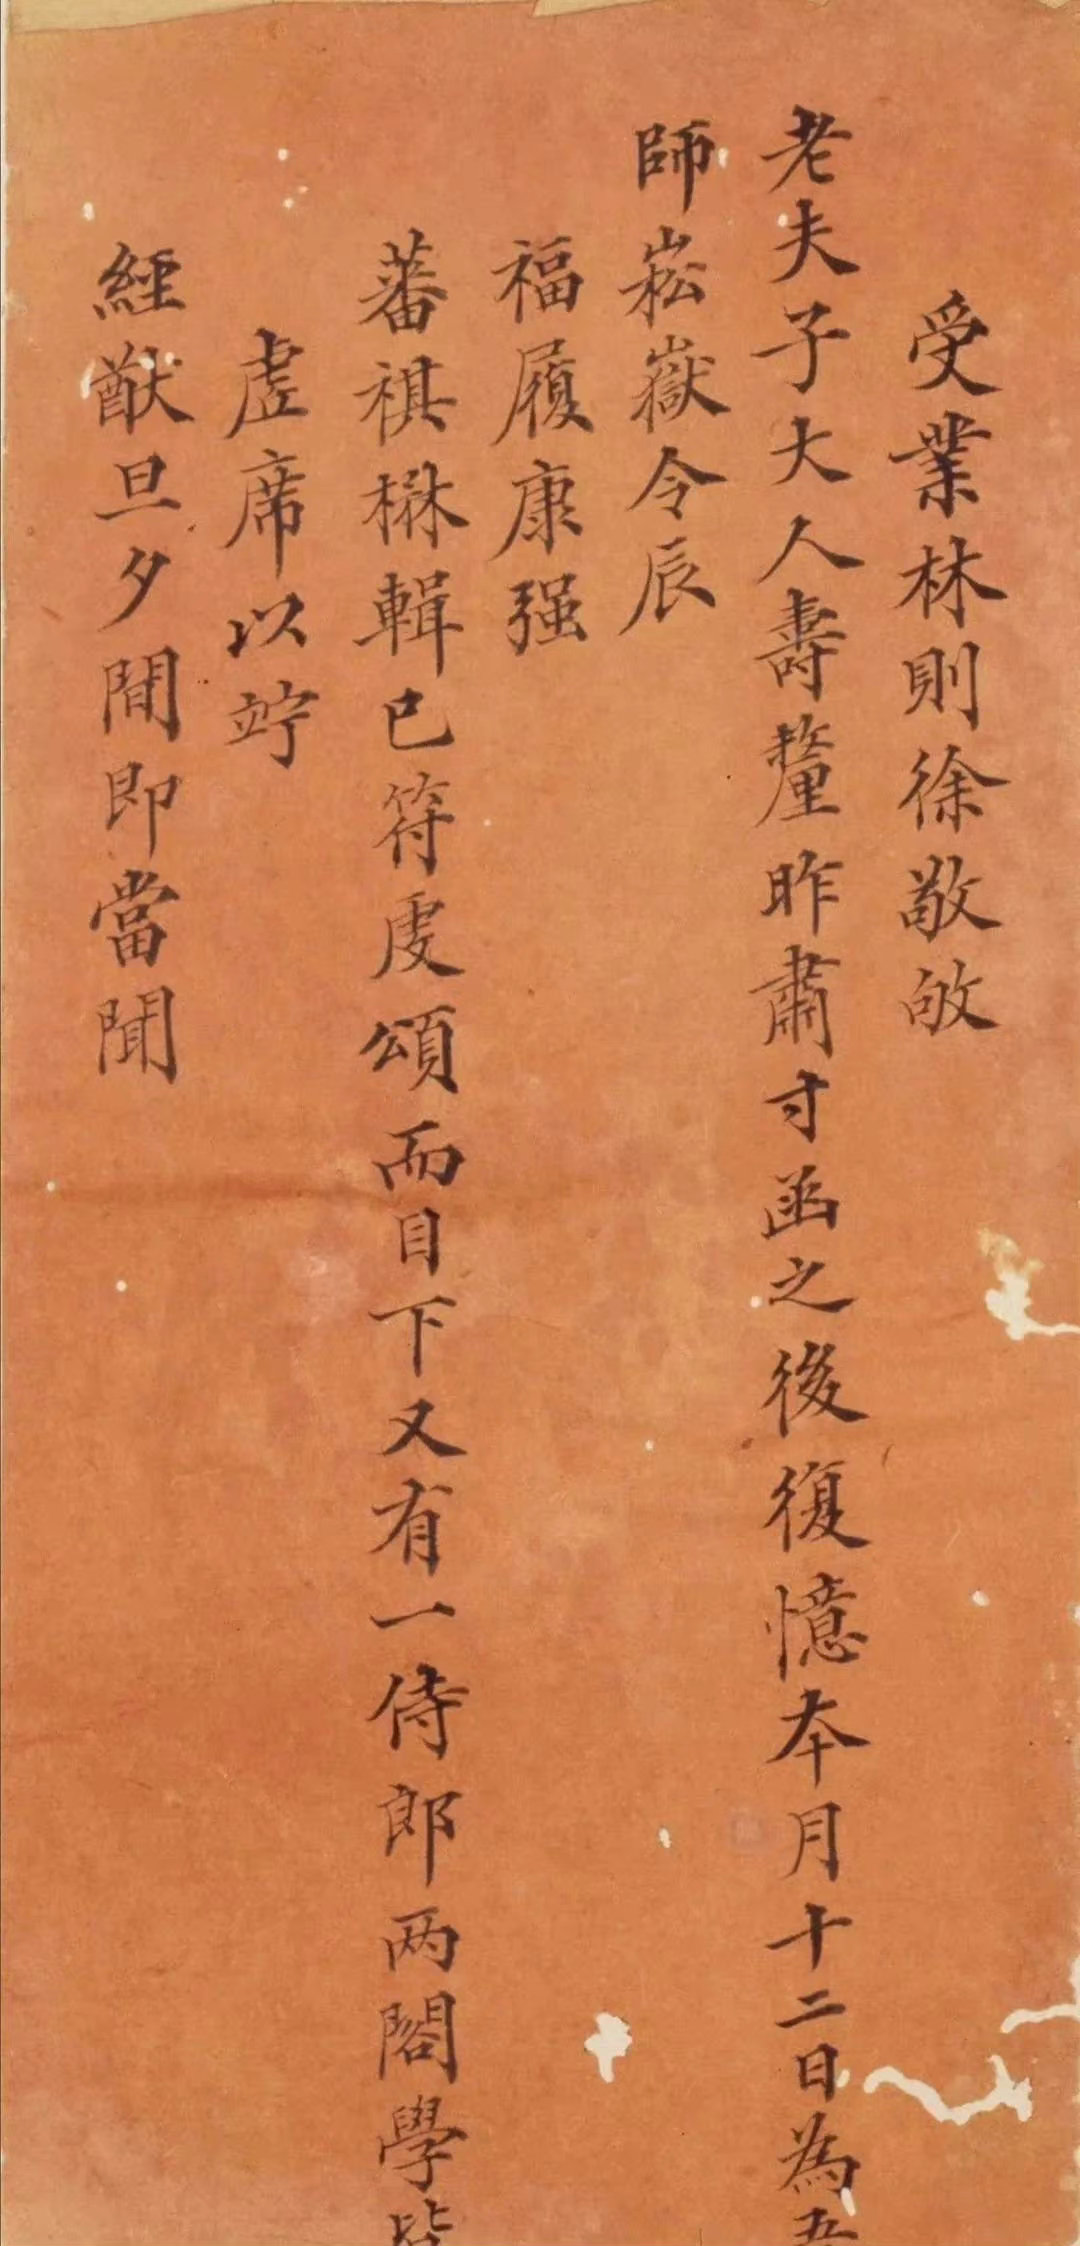 受業林則徐敬啟
老夫子大人壽釐昨肅寸函之後復憶本月十二日為吾
師崧嶽令辰
福履康强
蕃祺楙輯已符虔頌而目下又有一侍郎两閣學皆
虛席以竚
經猷旦夕間即當聞